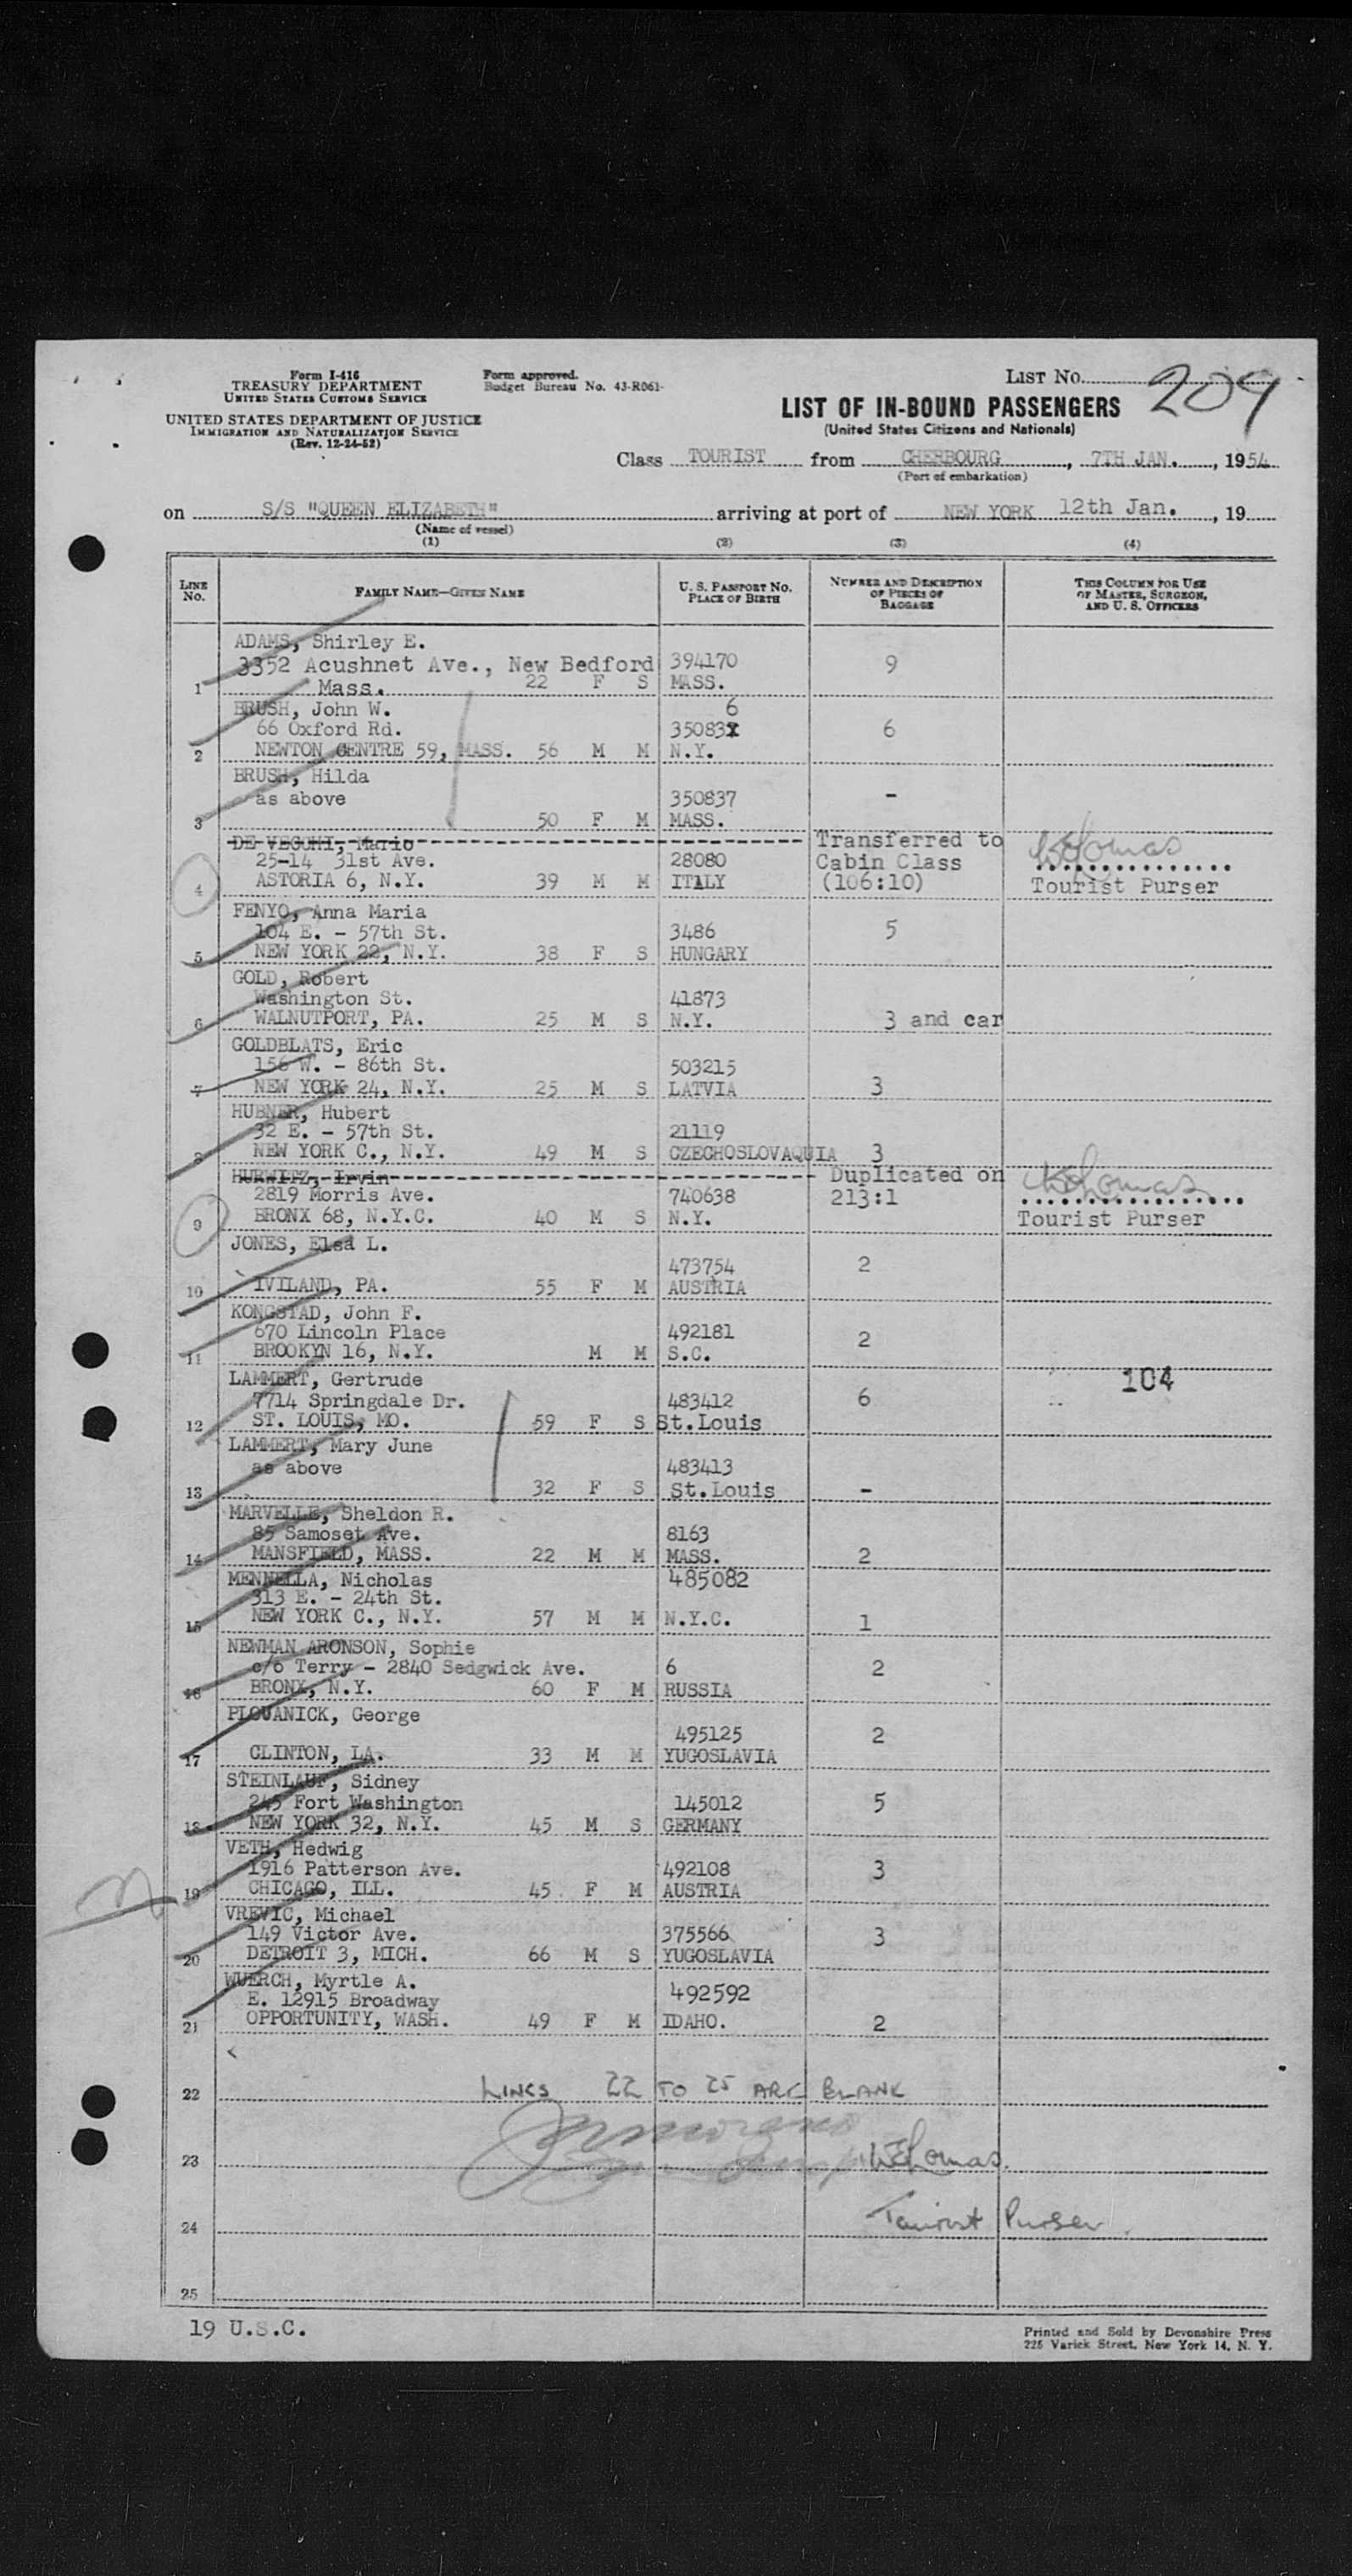 Form I-416
TREASURY DEPARTMENT
UNITED STATES CUSTOMS SERVICE
UNITED STATES DEPARTMENT OF JUSTICE
IMMIGRATION AND NATURALIZATION SERVICE
(Rev. 12-24-52)
Form approved.
Budget Bureau No. 43-R061-
LIST No. 209
LIST OF IN-BOUND PASSENGERS
(United States Citizens and Nationals)
Class TOURIST from CHERBOURG, 7TH JAN., 1954
(Port of embarkation)
on S/S "QUEEN ELIZABETH" arriving at port of NEW YORK 12th Jan., 19
(Name of vessel)
(1) (2) (3) (4)
LINE No. FAMILY NAME—GIVEN NAME U. S. PASSPORT No. PLACE OF BIRTH NUMBER AND DESCRIPTION OF PIECES OF BAGGAGE THIS COLUMN FOR USE OF MASTER, SURGEON, AND U. S. OFFICERS
ADAMS, Shirley E.
3352 Acushnet Ave., New Bedford 394170 9
1 Mass. 22 F S MASS.
BRUSH, John W. 6
66 Oxford Rd. 35083X 6
2 NEWTON CENTRE 59, MASS. 56 M M N.Y.
BRUSH, Hilda
as above 350837 -
3 50 F M MASS.
DE VECCHI, Mario Transferred to
25-14 31st Ave. 28080 Cabin Class
4 ASTORIA 6, N.Y. 39 M M ITALY (106:10) Tourist Purser
FENYO, Anna Maria
104 E. - 57th St. 3486 5
5 NEW YORK 22, N.Y. 38 F S HUNGARY
GOLD, Robert
Washington St. 41873
6 WALNUTPORT, PA. 25 M S N.Y. 3 and car
GOLDBLATS, Eric
156 W. - 86th St. 503215
7 NEW YORK 24, N.Y. 25 M S LATVIA 3
HUBNER, Hubert
32 E. - 57th St. 21119
8 NEW YORK C., N.Y. 49 M S CZECHOSLOVAQUIA 3
HURWITZ, Irvin Duplicated on
2819 Morris Ave. 740638 213:1
9 BRONX 68, N.Y.C. 40 M S N.Y. Tourist Purser
JONES, Elsa L.
473754 2
10 IVILAND, PA. 55 F M AUSTRIA
KONGSTAD, John F.
670 Lincoln Place 492181 2
11 BROOKYN 16, N.Y. M M S.C.
LAMMERT, Gertrude 104
7714 Springdale Dr. 483412 6
12 ST. LOUIS, MO. 59 F S St.Louis
LAMMERT, Mary June
as above 483413
13 32 F S St.Louis -
MARVELLE, Sheldon R.
85 Samoset Ave. 8163
14 MANSFIELD, MASS. 22 M M MASS. 2
MENNELLA, Nicholas 485082
313 E. - 24th St.
15 NEW YORK C., N.Y. 57 M M N.Y.C. 1
NEWMAN ARONSON, Sophie
c/o Terry - 2840 Sedgwick Ave. 6 2
16 BRONX, N.Y. 60 F M RUSSIA
PLOUANICK, George
495125 2
17 CLINTON, LA. 33 M M YUGOSLAVIA
STEINLAUF, Sidney
245 Fort Washington 145012 5
18 NEW YORK 32, N.Y. 45 M S GERMANY
VETH, Hedwig
1916 Patterson Ave. 492108 3
19 CHICAGO, ILL. 45 F M AUSTRIA
VREVIC, Michael
149 Victor Ave. 375566 3
20 DETROIT 3, MICH. 66 M S YUGOSLAVIA
WUERCH, Myrtle A.
E. 12915 Broadway 492592
21 OPPORTUNITY, WASH. 49 F M IDAHO. 2
22 LINES 22 TO 25 ARE BLANK
23 Thomas.
24 Tourist Purser.
25
19 U.S.C.
Printed and Sold by Devonshire Press
225 Varick Street, New York 14, N. Y.